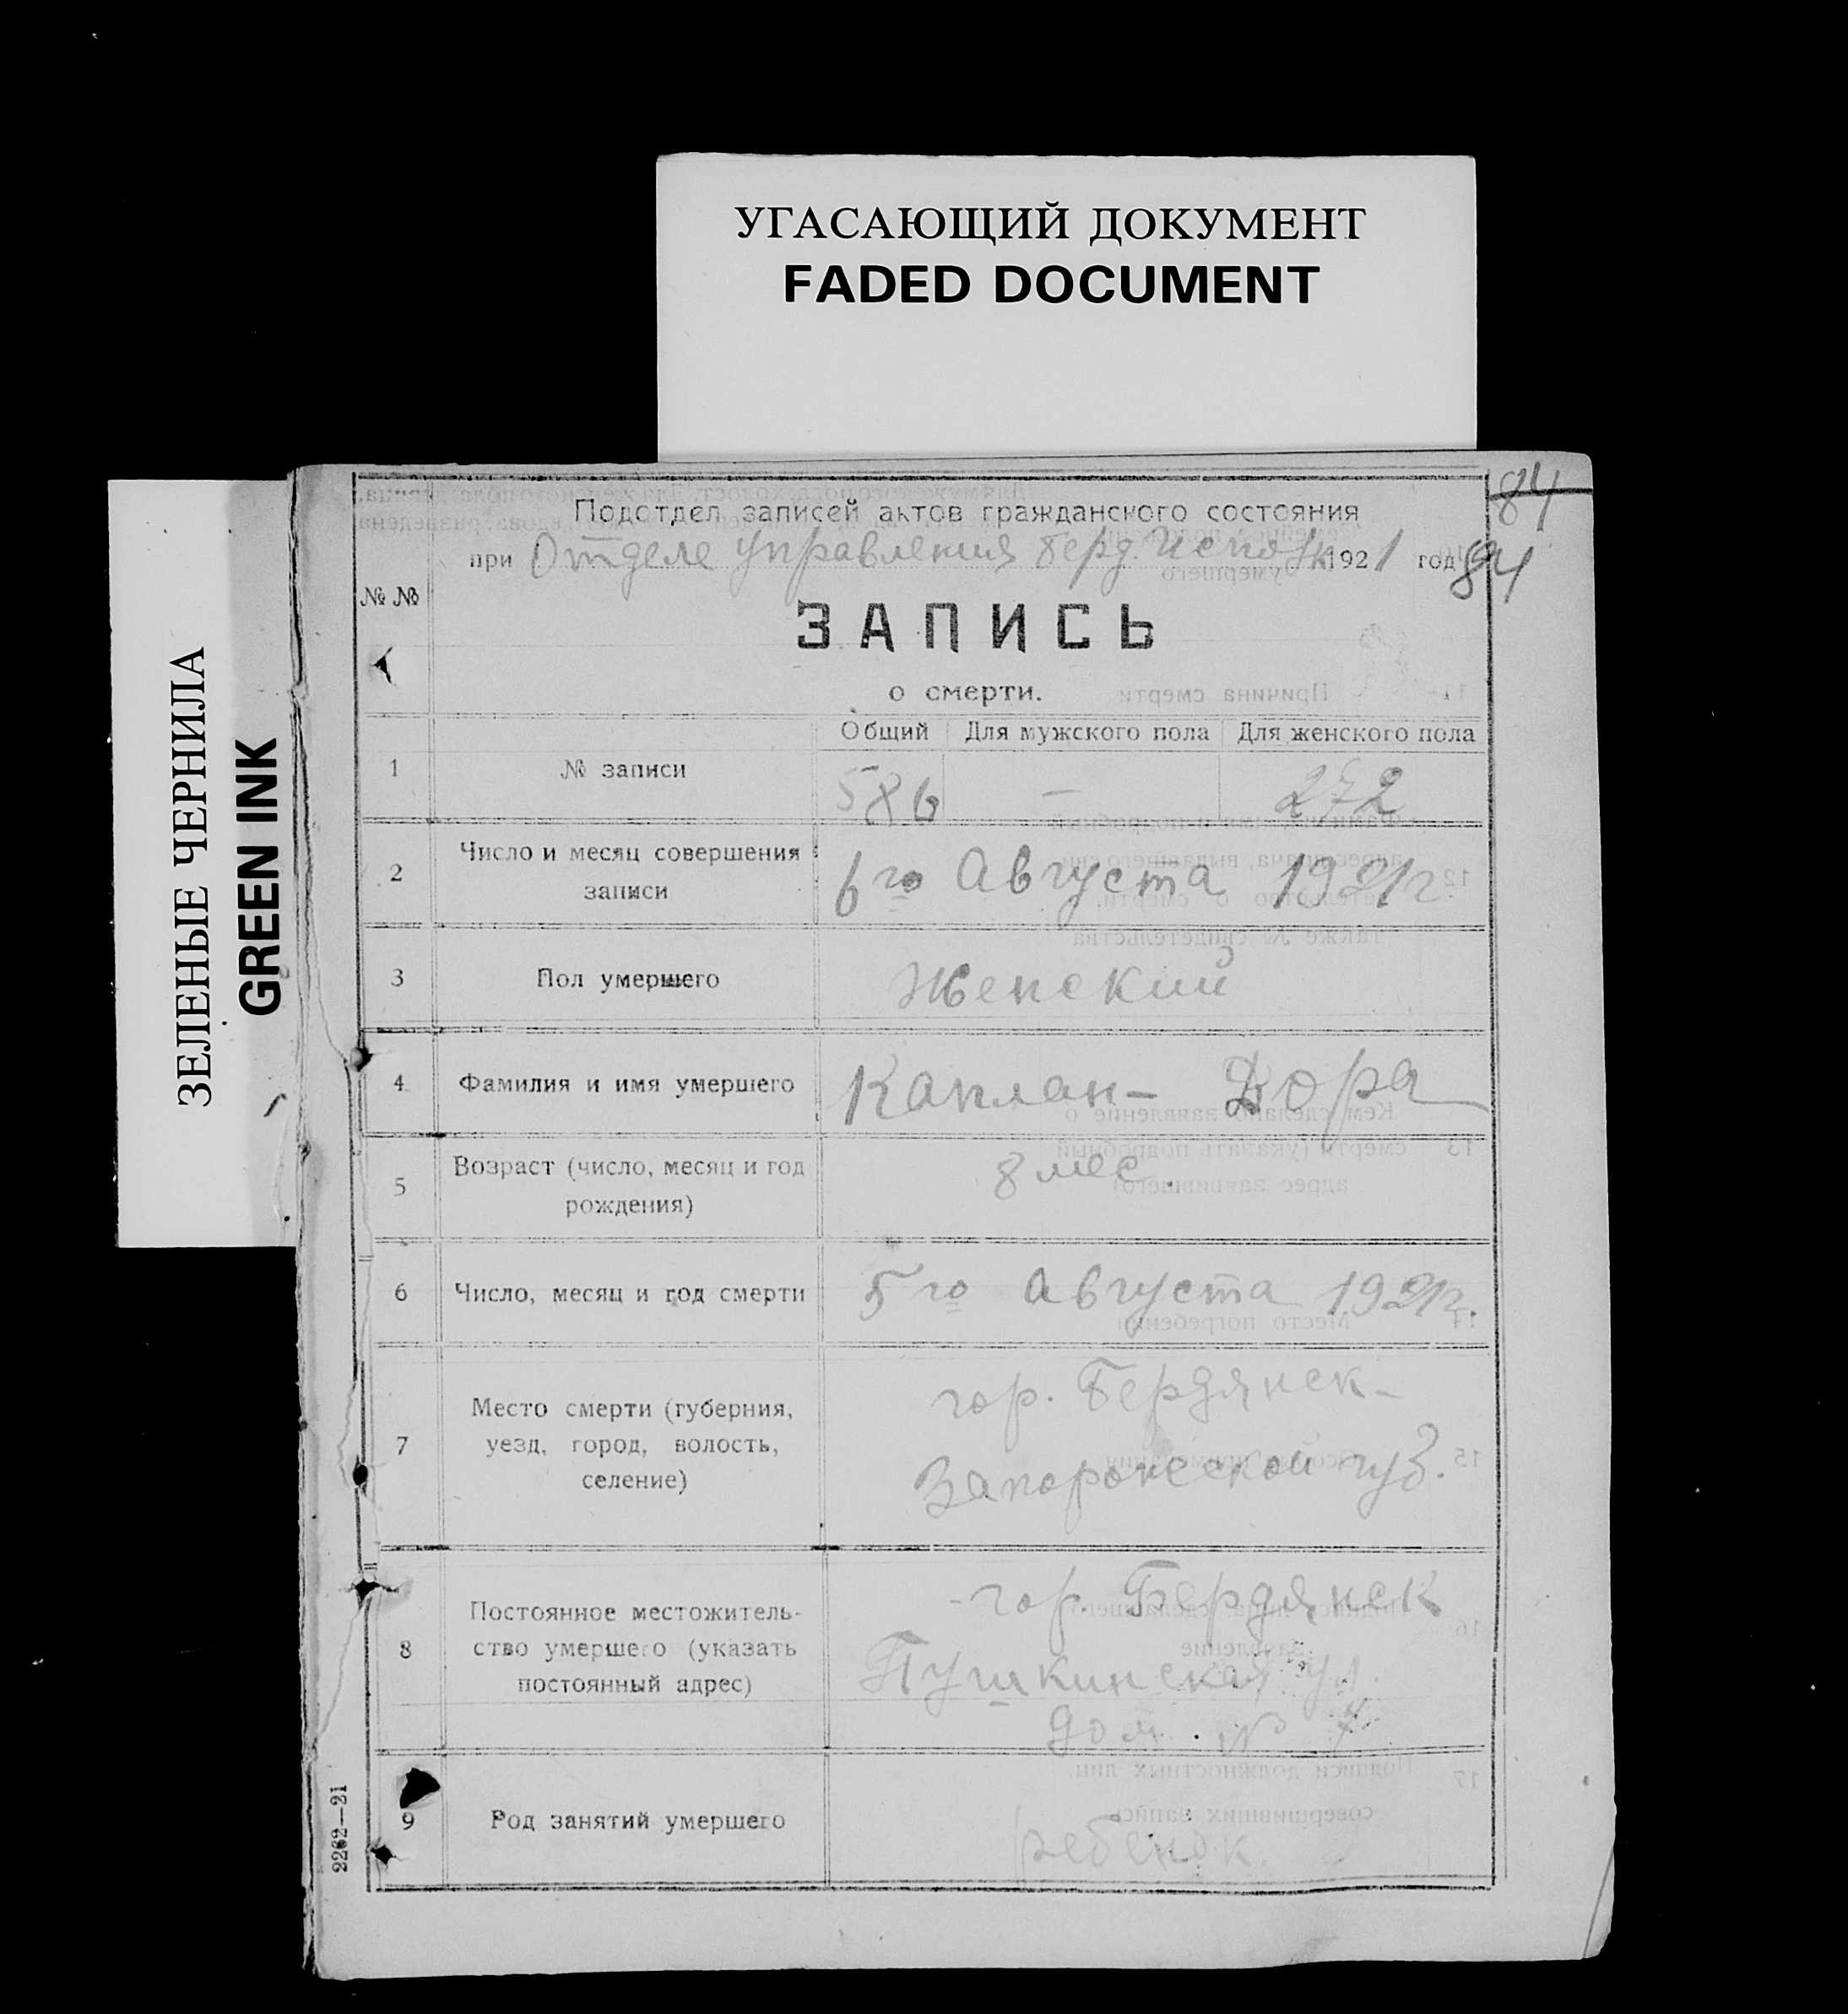 УГАСАЮЩИЙ ДОКУМЕНТ
FADED DOCUMENT
ЗЕЛЕНЫЕ ЧЕРНИЛА
GREEN INK
84
Подотдел записей актов гражданского состояния
при Отделе Управления Берд. Исполк. 1921 год
84
№ №
ЗАПИСЬ
о смерти.
Общий Для мужского пола Для женского пола
1 № записи 586 — 272
2 Число и месяц совершения
записи
6го Августа 1921г.
3 Пол умершего Женский
4 Фамилия и имя умершего Каплан- Дора
5 Возраст (число, месяц и год
рождения)
8 мес.
6 Число, месяц и год смерти 5го Августа 1921г.
7 Место смерти (губерния,
уезд, город, волость,
селение)
гор. Бердянск-
Запорожской губ.
8 Постоянное местожитель-
ство умершего (указать
постоянный адрес)
гор. Бердянск
Пушкинская ул.
дом. №
9 Род занятий умершего ребенок.
2262—21